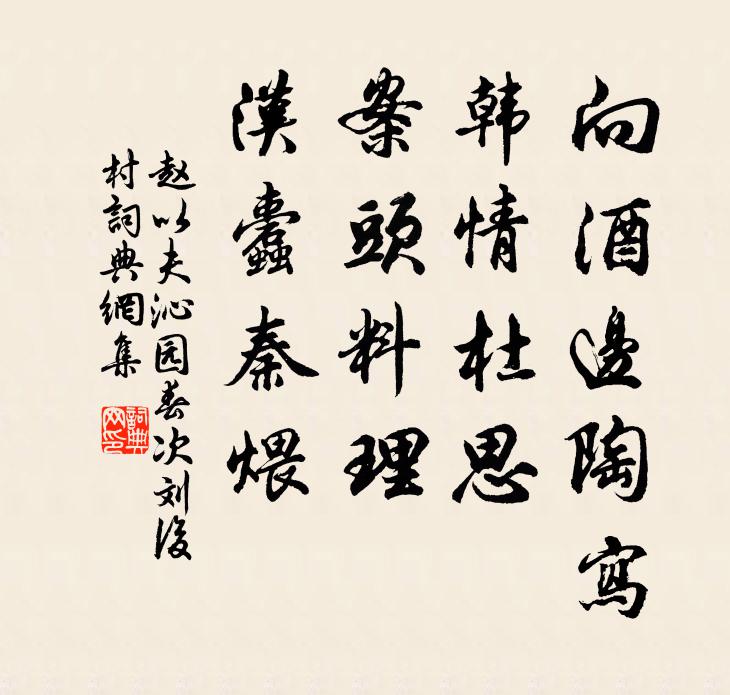 向酒邊陶寫
韩情杜思
案頭料理
漢蠹秦煨
赵以夫沁园春次刘後
村詞典網集
詞典
网印